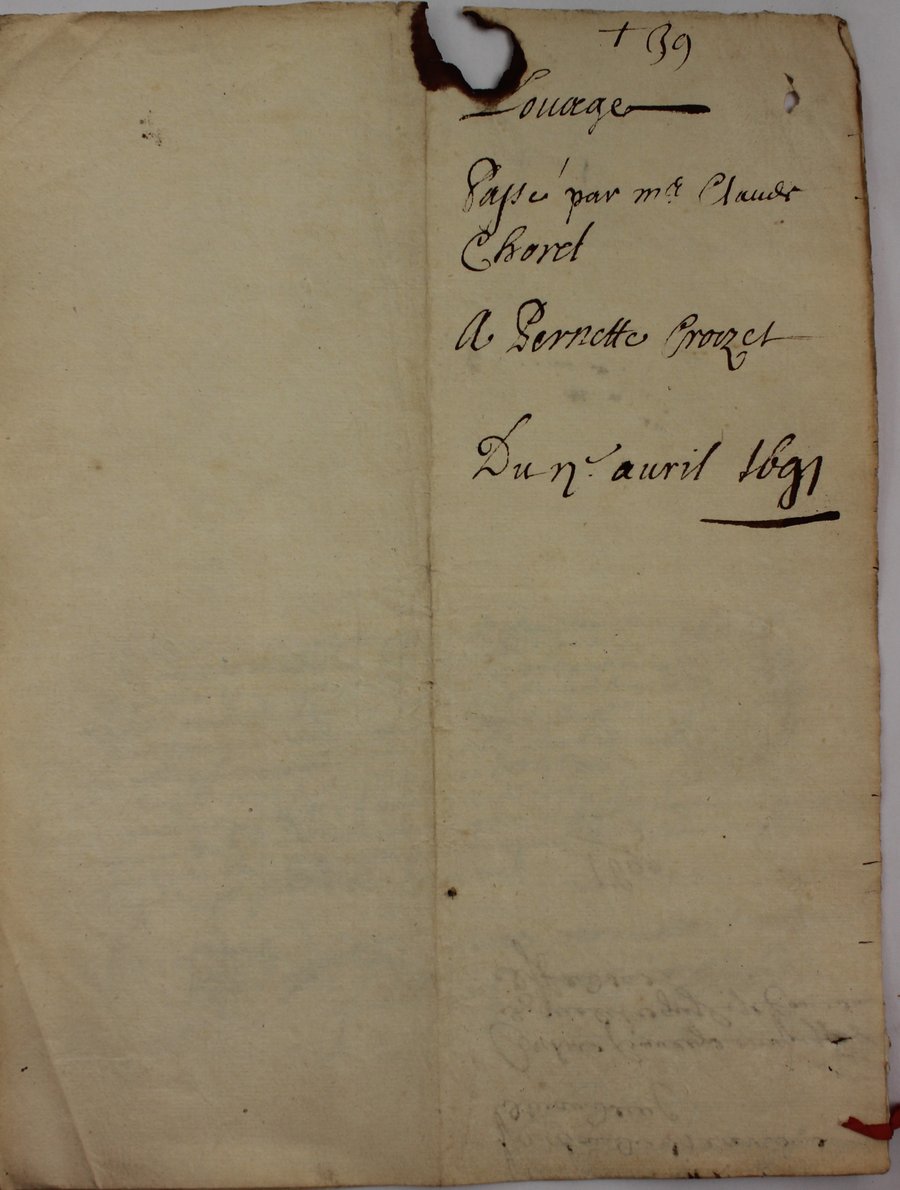 + 39
Louage
Passé par mr Claude
Chorel
A Pernette Crozet
Du avril 1691